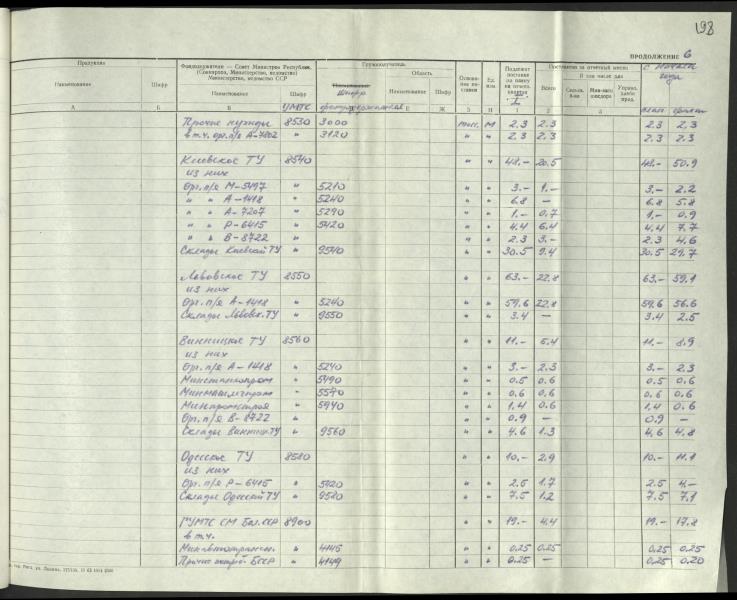 198
ПРОДОЛЖЕНИЕ 6
Продукция
Фондодержатели — Совет Министров Республик, (Совнархоз, Министерства, ведомства) Министерства, ведомства СССР
Грузополучатель
Подлежит поставке по плану
Поставлено за отчетный месяц
с начала года
Наименование Шифр Наименование Шифр Наименование Область Шифр Ед. изм. Всего В том числе для
шифр
УМТС фондодержателя I план
А Б В Е Ж
Прочие нужды 8530 3000 тыс. м 2.3 2.3 2.3 2.3
в т.ч. орг. п/я А-7202 " 3120 " " 2.3 2.3 2.3 2.3
Киевское ТУ 8540 " " 48.- 20.5 48.- 50.9
из них
Орг. п/я М-5497 " 5210 " " 3.- 1.- 3.- 2.2
" " А-1418 " 5240 " " 6.8 — 6.8 5.8
" " А-7207 " 5290 " " 1.- 0.7 1.- 0.9
" " Р-6415 " 5420 " " 4.4 6.4 4.4 7.7
" " В-8722 " " " 2.3 3.- 2.3 4.6
Склады Киевский ТУ " 9540 " " 30.5 9.4 30.5 29.7
Львовское ТУ 8550 " " 63.- 22.8 63.- 59.1
из них
Орг. п/я А-1418 " 5240 " " 59.6 22.8 59.6 56.6
Склады Львовск. ТУ " 9550 " " 3.4 — 3.4 2.5
Винницкое ТУ 8560 " " 11.- 5.4 11.- 8.9
из них
Орг. п/я А-1418 " 5240 " " 3.- 2.3 3.- 2.3
Минстанкопром " 5490 " " 0.5 0.6 0.5 0.6
Минмашлегпром " 5570 " " 0.6 0.6 0.6 0.6
Минпромстрой " 5940 " " 1.4 0.6 1.4 0.6
Орг. п/я В-8722 " " " 0.9 — 0.9 —
Склады Винницк. ТУ " 9560 " " 4.6 1.3 4.6 4.8
Одесское ТУ 8580 " " 10.- 2.9 10.- 11.1
из них
Орг. п/я Р-6415 " 5420 " " 2.5 1.7 2.5 4.-
Склады Одесский ТУ " 9580 " " 7.5 1.2 7.5 7.1
ГУМТС СМ Бел. ССР 8900 " " 19.- 4.4 19.- 17.8
в т.ч.
Минавтотрансп. " 4145 " " 0.25 0.25 0.25 0.25
Прочие потреб. БССР " 4149 " " 0.25 — 0.25 0.20